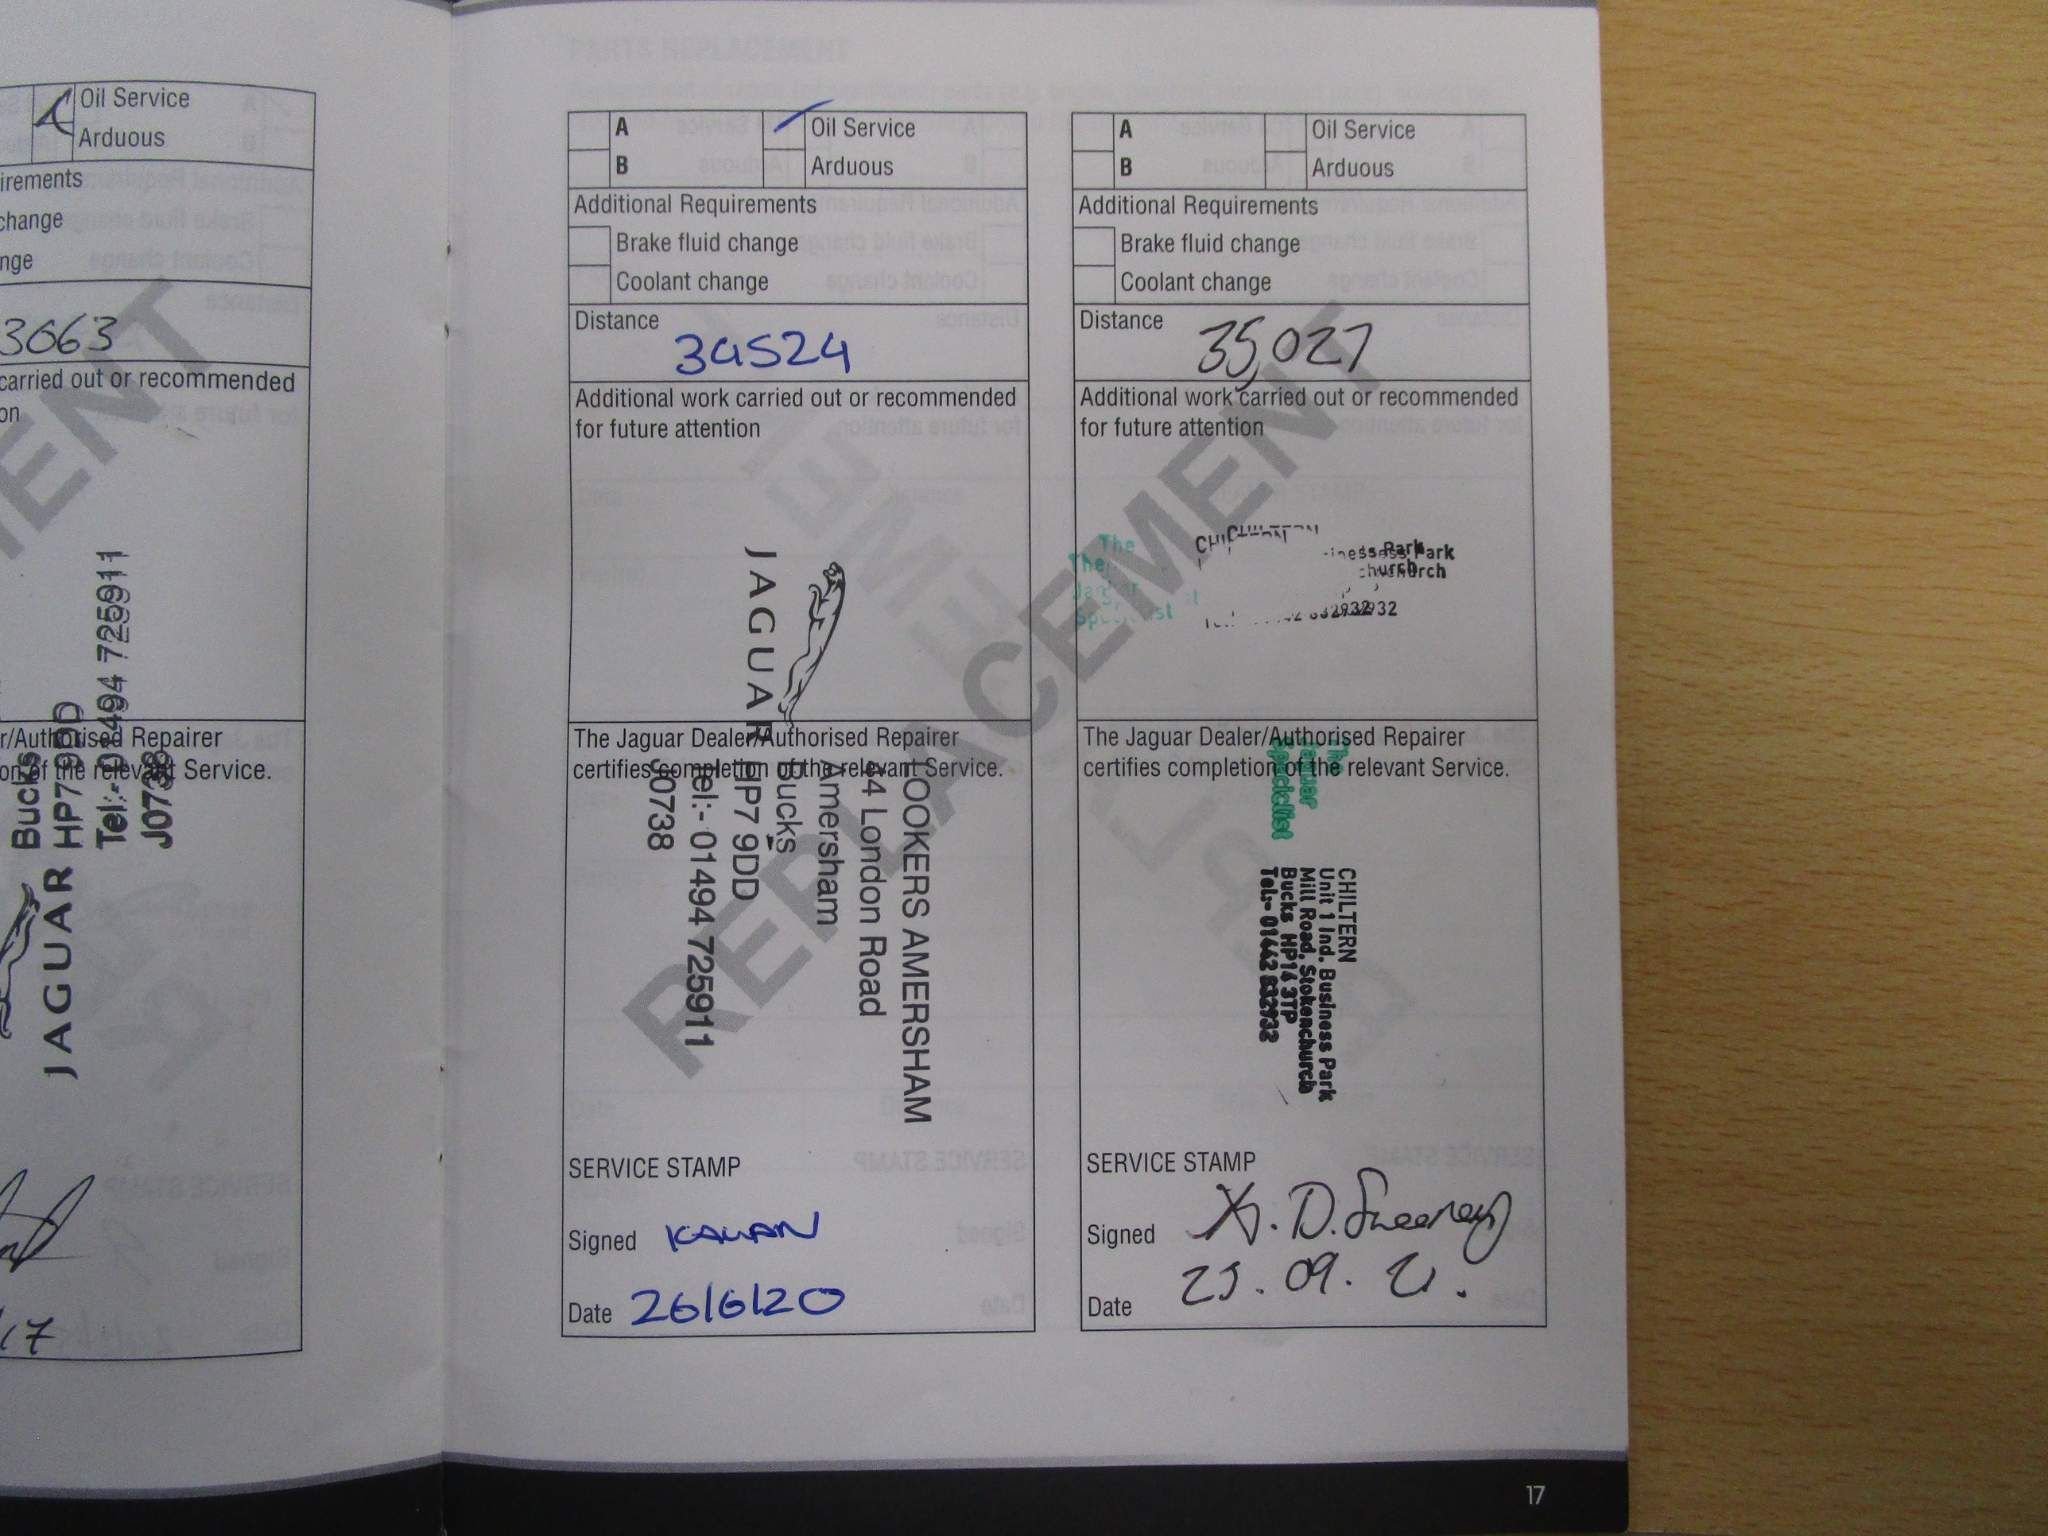 Oil Service
Arduous
irements
change
nge
3063
carried out or recommended
on
r/Authorised Repairer
on of the relevant Service.
Bucks
HP7 9DD
Tel:- 01494 725911
J0738
JAGUAR
/17
A
Oil Service
B
Arduous
Additional Requirements
Brake fluid change
Coolant change
Distance
34524
Additional work carried out or recommended
for future attention
JAGUAR
The Jaguar Dealer/Authorised Repairer
certifies completion of the relevant Service.
LOOKERS AMERSHAM
44 London Road
Amersham
Bucks
HP7 9DD
Tel:- 01494 725911
J0738
SERVICE STAMP
Signed
Date 26/6/20
A
Oil Service
B
Arduous
Additional Requirements
Brake fluid change
Coolant change
Distance
35,027
Additional work carried out or recommended
for future attention
The
The
Jaguar
Specialist
CHILTERN
Park
The Jaguar Dealer/Authorised Repairer
certifies completion of the relevant Service.
The
Jaguar
Specialist
CHILTERN
Unit 1 Ind. Business Park
Mill Road, Stokenchurch
Bucks HP14 3TP
Tel:- 01442 832932
SERVICE STAMP
Signed D. Sweeney
Date
09. 21.
REPLACEMENT
EMENT
17